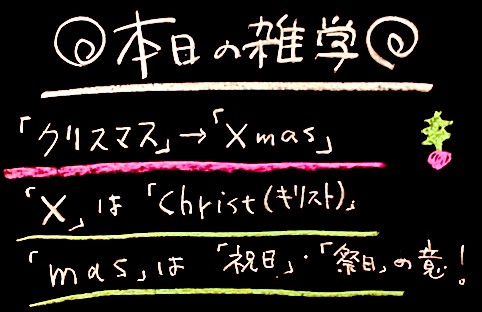 本日の雑学
「クリスマス」→「Xmas」
「X」は「Christ(キリスト)」
「mas」は「祝日」・「祭日」の意!